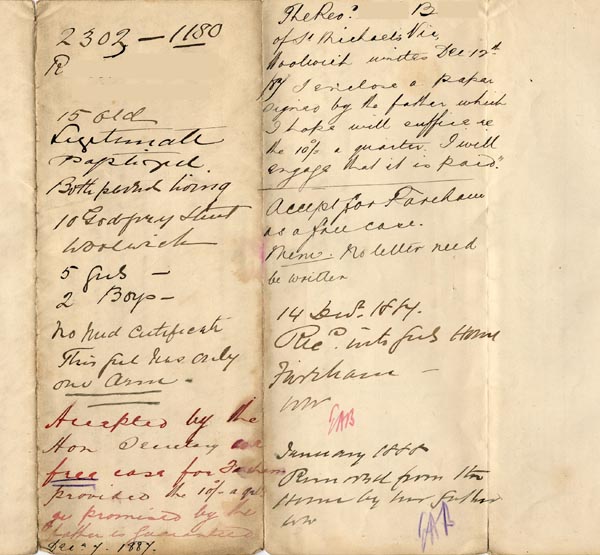 2302 – 1180
R
15 old
Legitimate
Baptized.
Both parents living
10 Godfrey Street
Woolwich
5 Girls –
2 Boys –
No Med Certificate
This girl has only
one arm.
Accepted by the
Hon Secretary as a
free case for Fareham
provided the 10/- a qr
promised by the
father is guaranteed
Decr 7. 1887.
The Revd B
of St Michaels Vic
Woolwich writes Dec 12th
/87 I enclose a paper
signed by the father which
I hope will suffice re
the 10/- a quarter. I will
engage that it is paid".
Accept for Fareham
as a free case.
Mem. No letter need
be written
14 Decr. 1887.
Recd. into Girls Home
Fareham –
EAB
January 1888
Removed from the
Home by her father
EAB